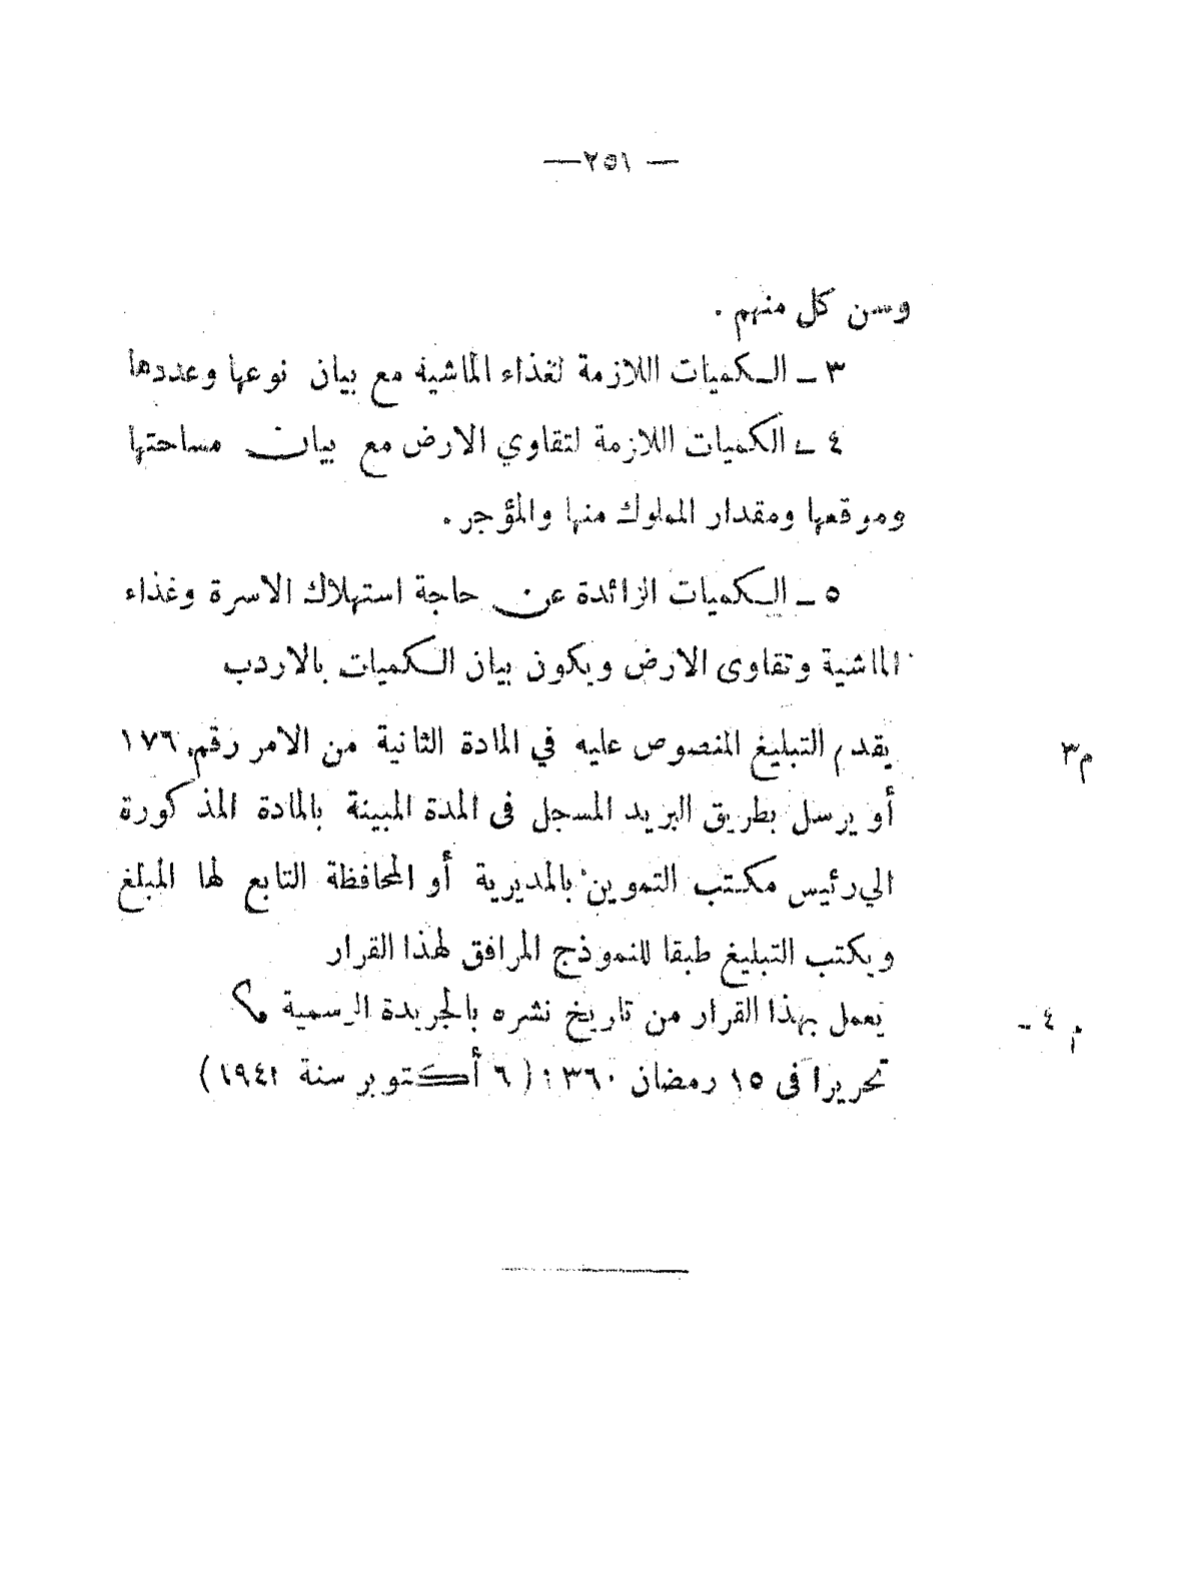 — ٢٥١ —
وسن كل منهم .
٣ ــ الكميات اللازمة لغذاء الماشية مع بيان نوعها وعددها
٤ ــ الكميات اللازمة لتقاوي الارض مع بيان مساحتها
وموقعها ومقدار المملوك منها والمؤجر .
٥ ــ الكميات الزائدة عن حاجة استهلاك الاسرة وغذاء
الماشية وتقاوى الارض ويكون بيان الكميات بالاردب
م٣ يقدم التبليغ المنصوص عليه في المادة الثانية من الامر رقم ١٧٦
أو يرسل بطريق البريد المسجل فى المدة المبينة بالمادة المذكورة
الي رئيس مكتب التموين بالمديرية أو المحافظة التابع لها المبلغ
ويكتب التبليغ طبقا للنموذج المرافق لهذا القرار
م ٤ ــ يعمل بهذا القرار من تاريخ نشره بالجريدة الرسمية
تحريرا فى ١٥ رمضان ١٣٦٠ ( ٦ أكتوبر سنة ١٩٤١ )